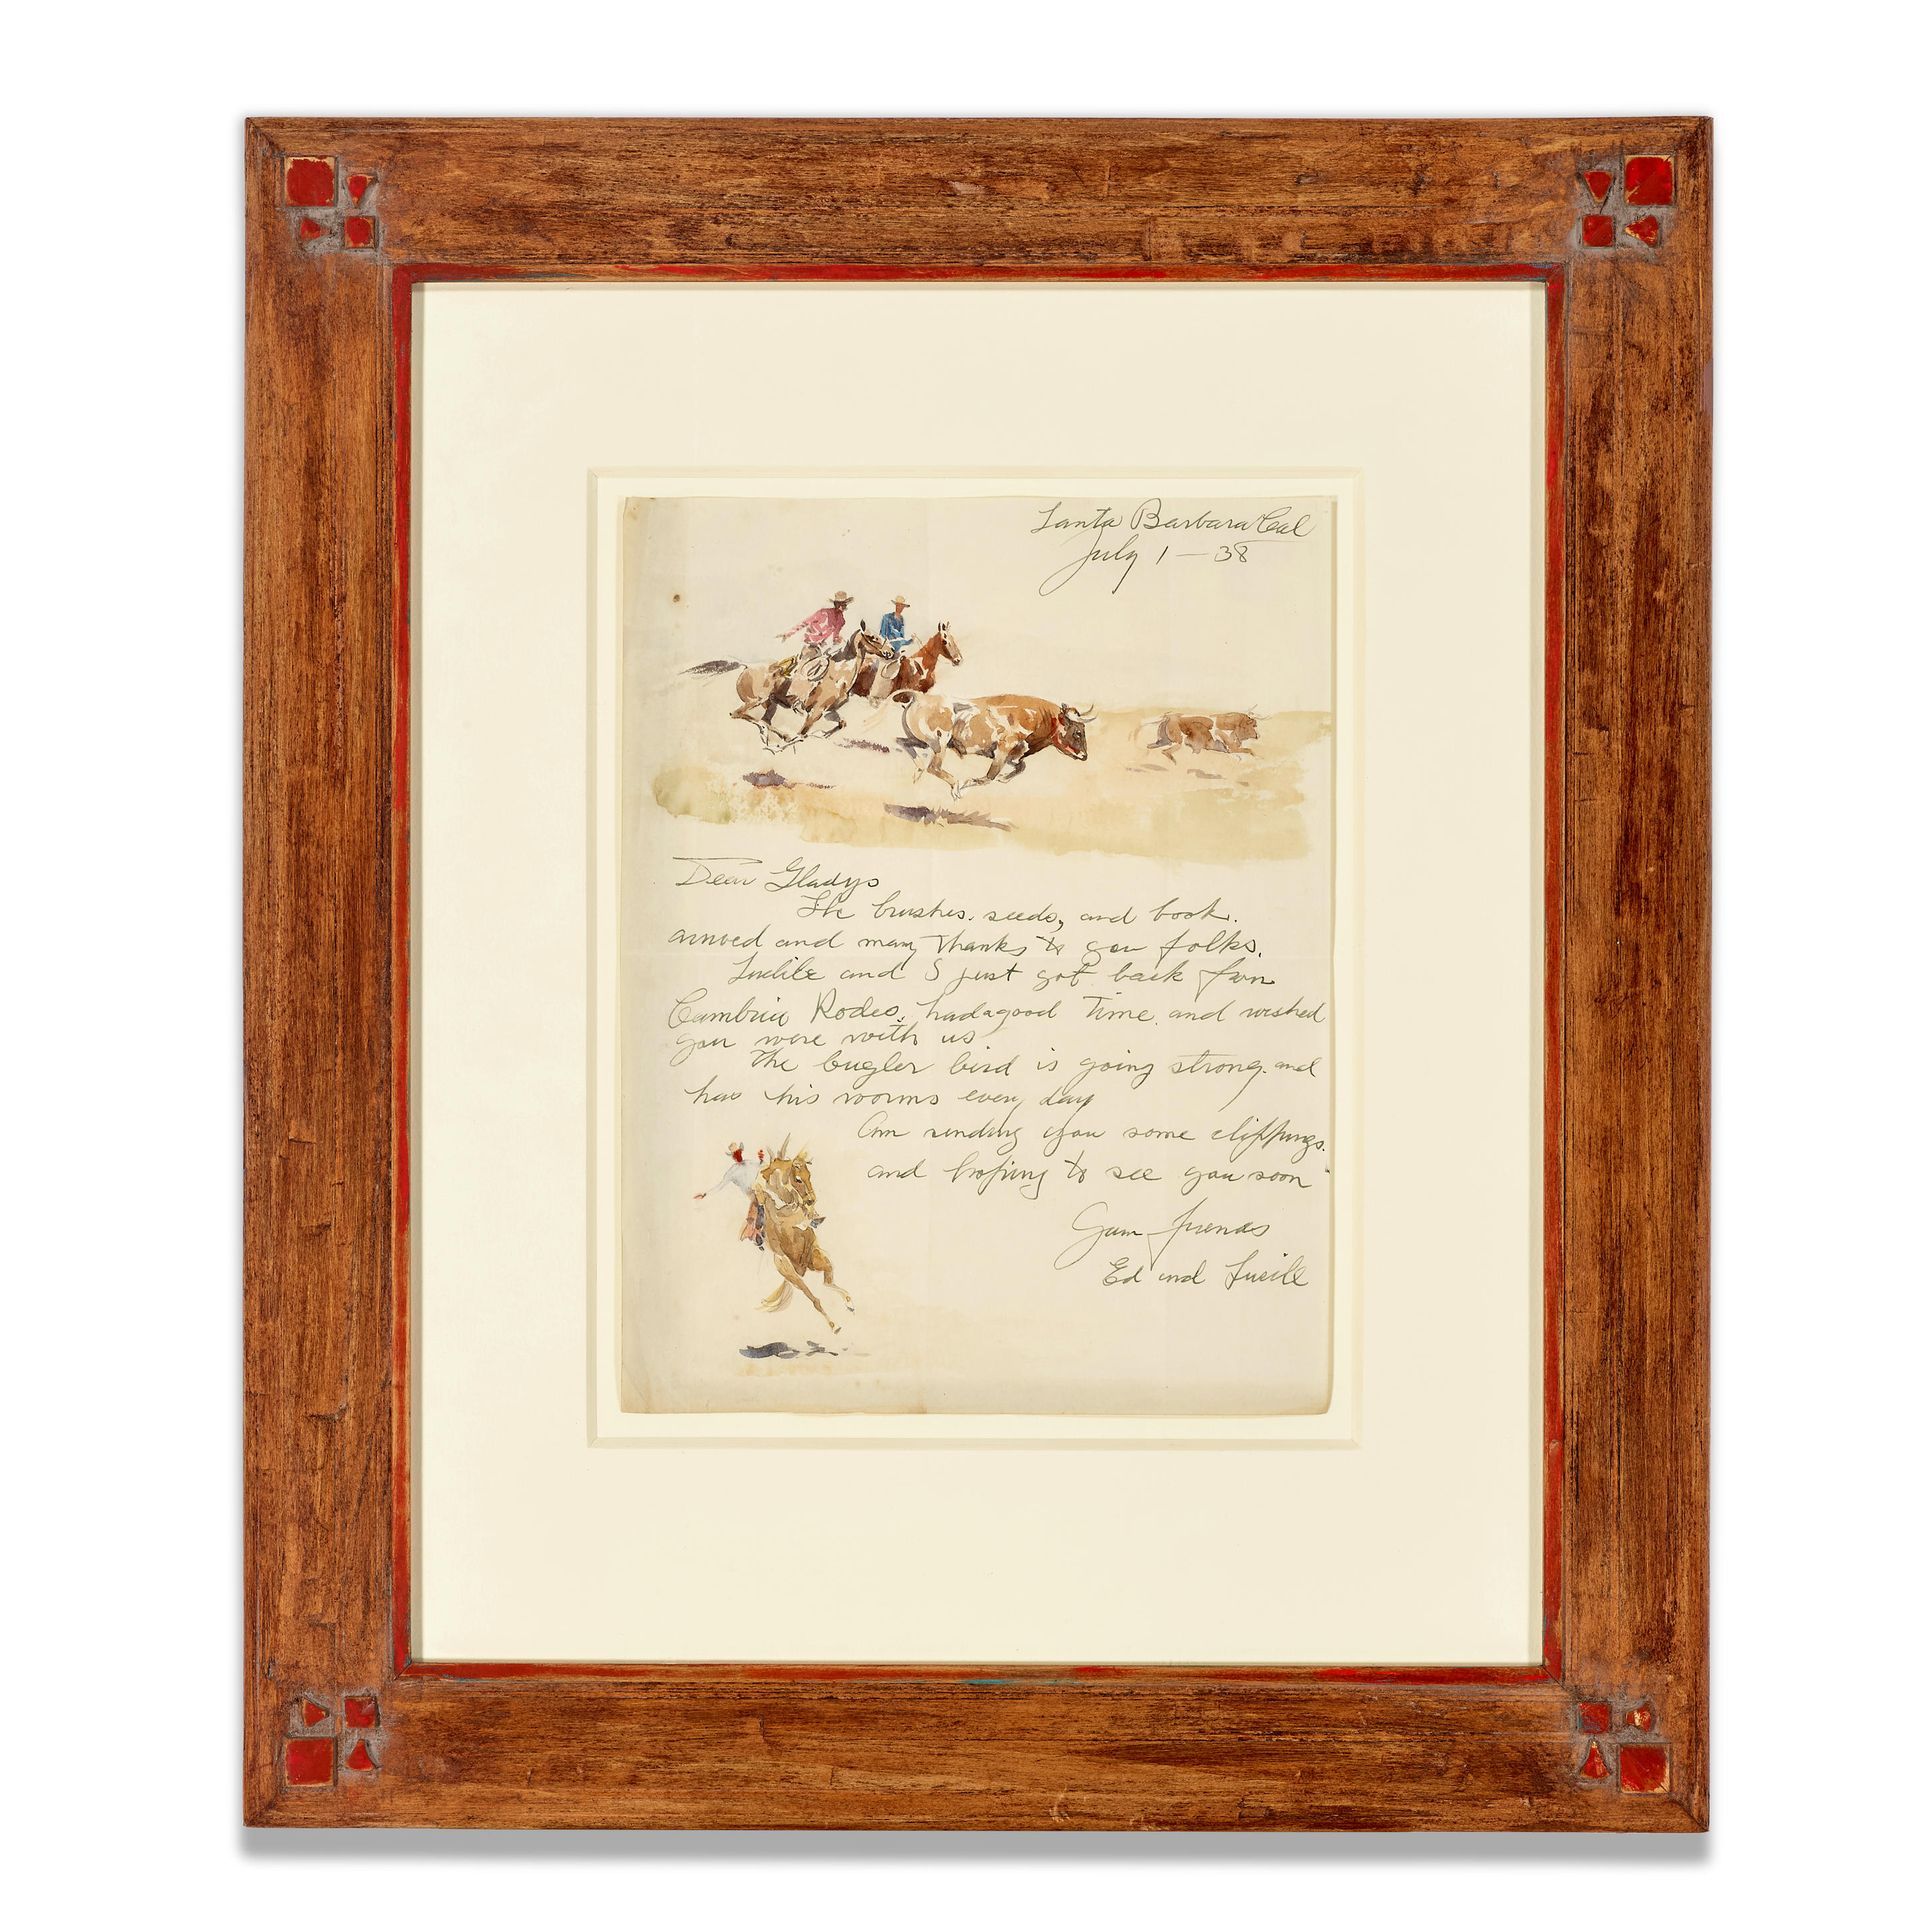 Santa Barbara Cal
July 1 — 38
Dear Gladys
The brushes. seeds, and book.
arrived and many Thanks to you folks.
Lucile and I just got back from
Cambria Rodeo. had a good Time. and wished
you were with us
The bugler bird is going strong. and
has his worms every day
Am sending you some clippings.
and hoping to see you soon
Your friends
Ed and Lucile